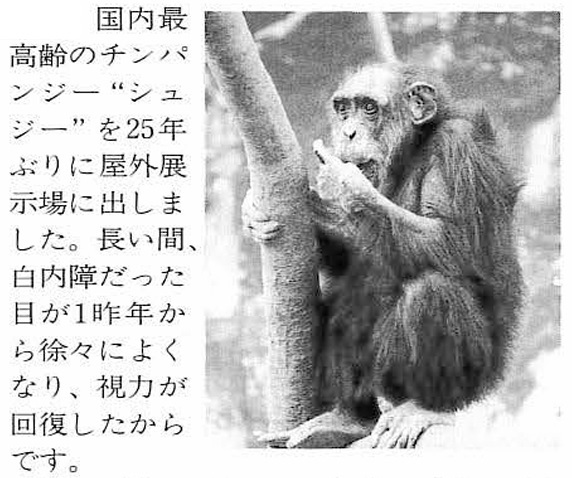 国内最
高齢のチンパ
ンジー“シュ
ジー”を25年
ぶりに屋外展
示場に出しま
した。長い間、
白内障だった
目が1昨年か
ら徐々によく
なり、視力が
回復したから
です。